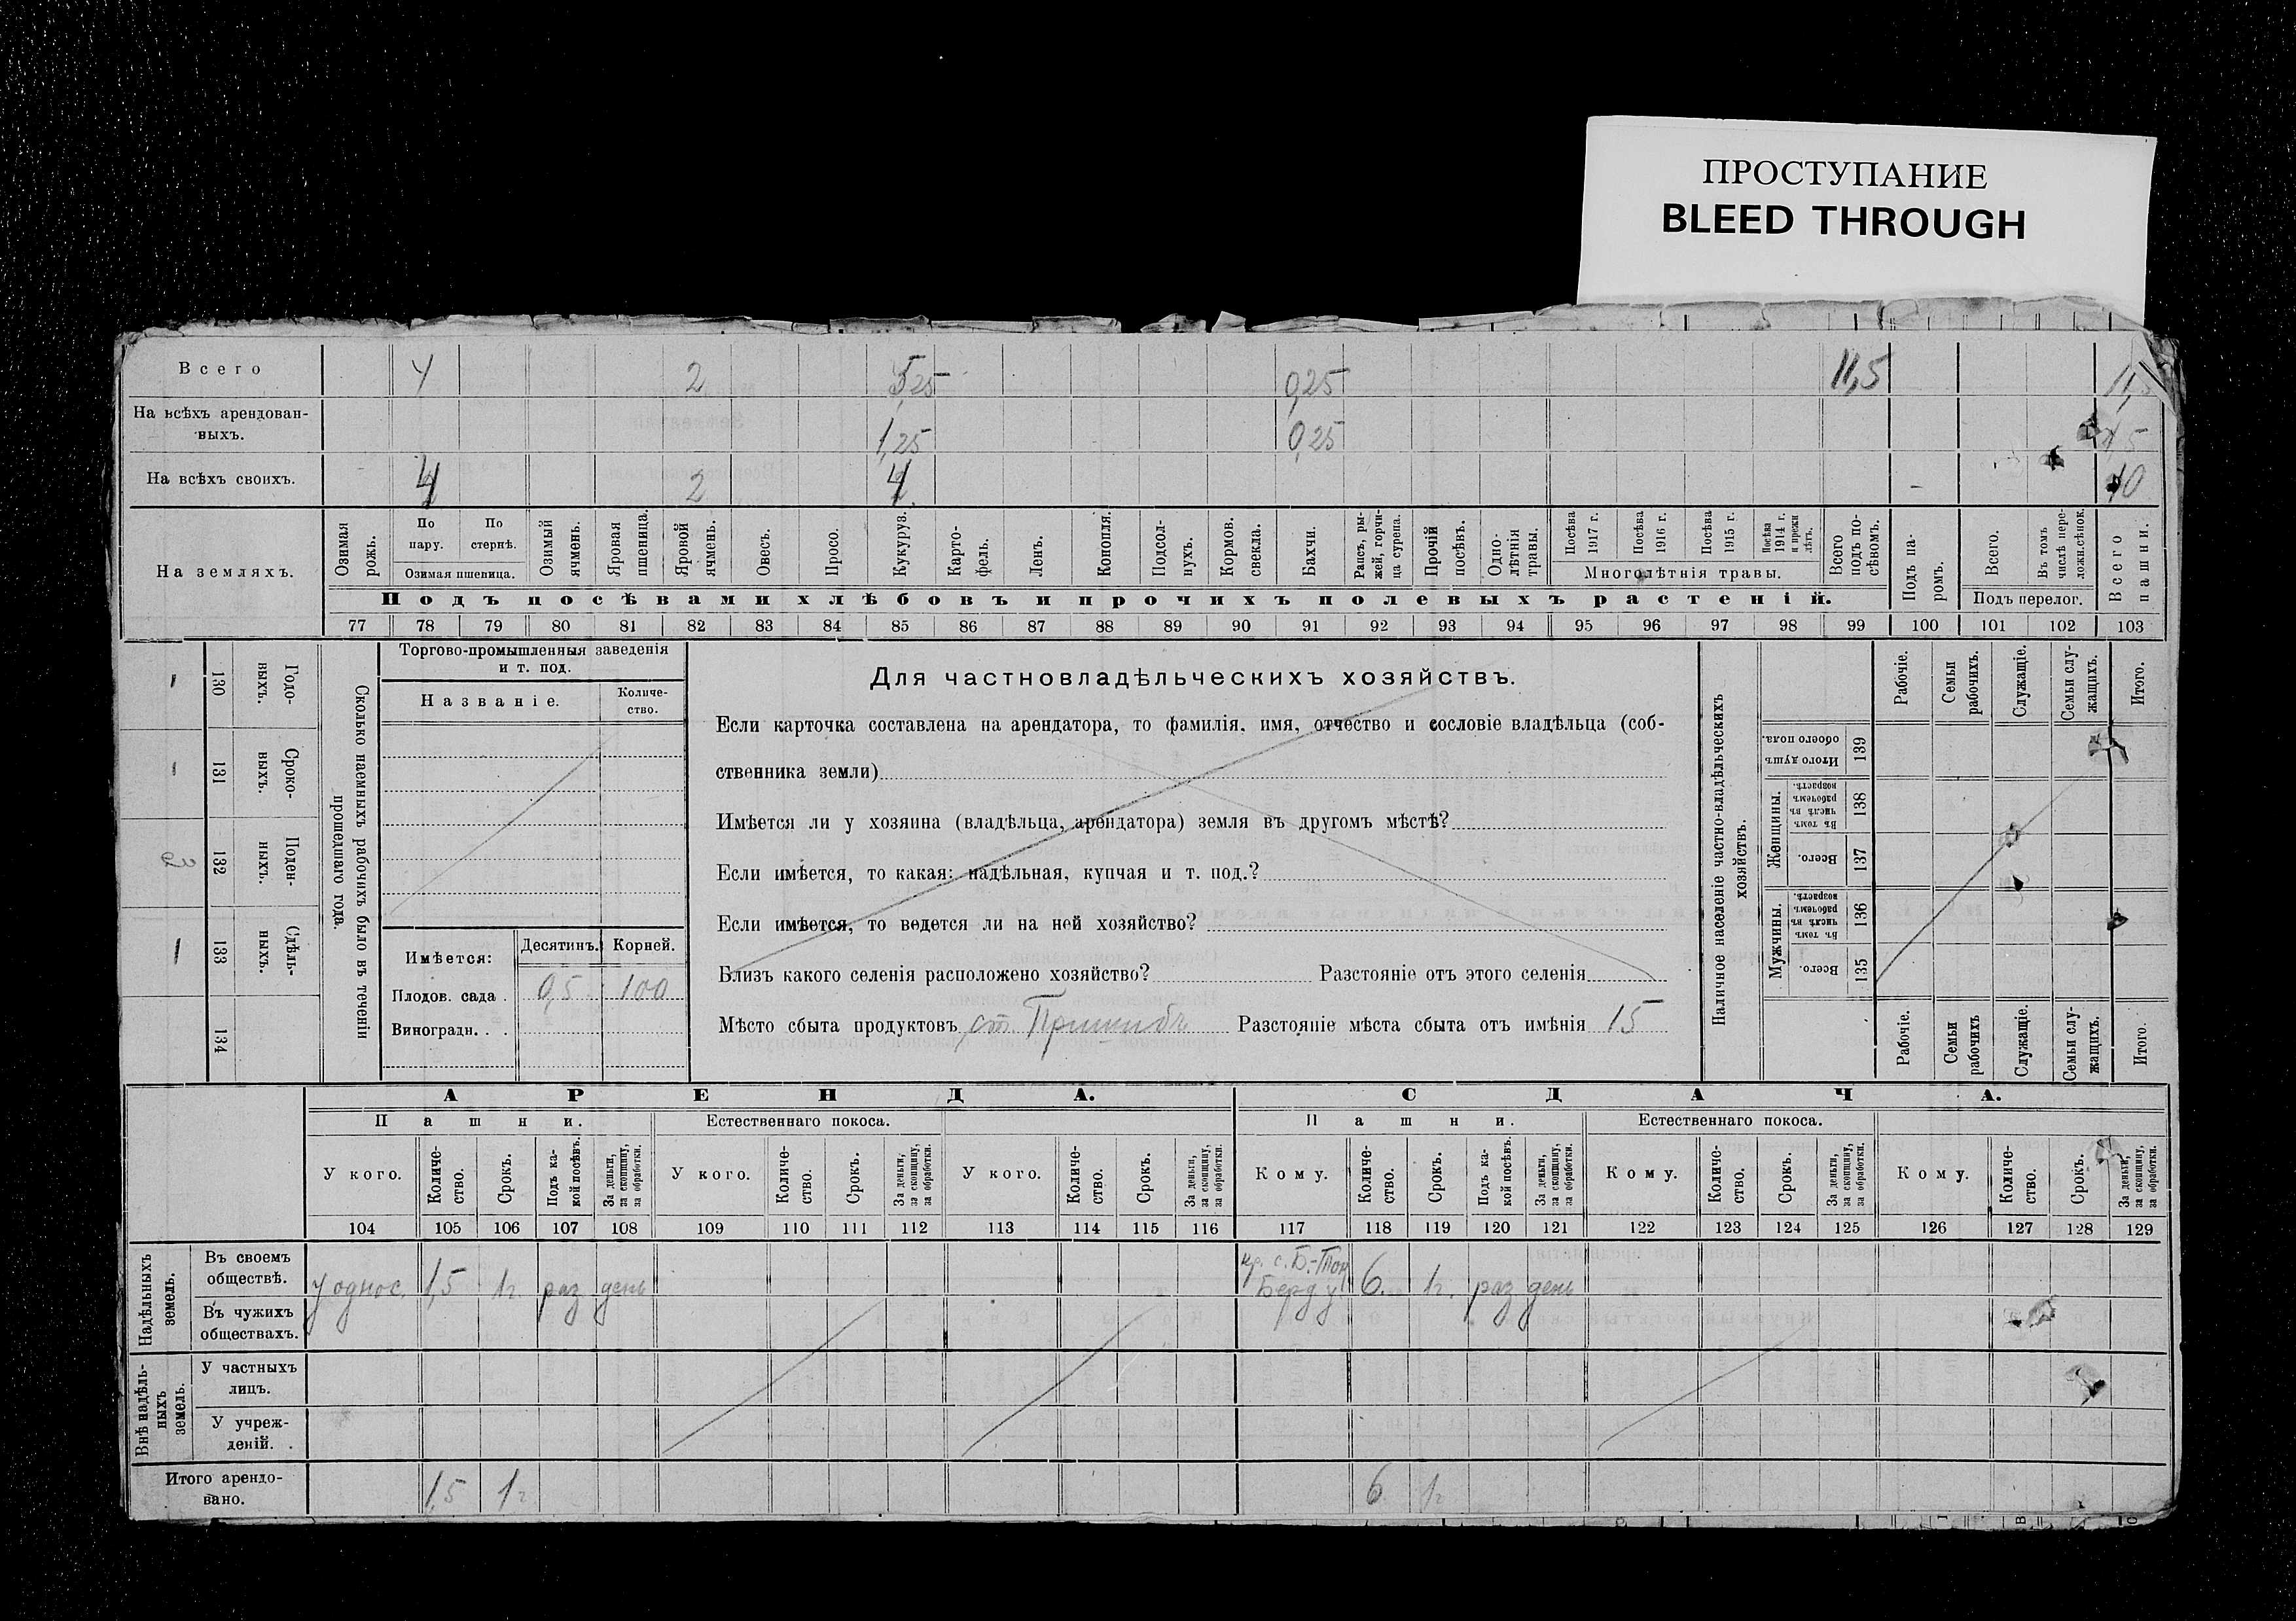 ПРОСТУПАНИЕ
BLEED THROUGH
Всего 4 2 5,25 0,25 11,5 11,5
На всѣхъ арендован-
ныхъ. 1,25 0,25 1,5
На всѣхъ своихъ. 4 2 4 10
На земляхъ.
Озимая рожь.
По пару.
По стернѣ.
Озимая пшеница.
Озимый ячмень.
Яровая пшеница.
Яровой ячмень.
Овесъ.
Просо.
Кукуруз.
Карто-
фель.
Ленъ.
Конопля.
Подсол-
нухъ.
Кормов. свекла.
Бахчи.
Рапсъ, ры-
жей, горчи-
ца сурепа.
Прочій посѣвъ.
Одно-
лѣтнія травы.
Посѣва 1917 г.
Посѣва 1916 г.
Посѣва 1915 г.
Посѣва 1914 г. и прежн лѣтъ.
Многолѣтнія травы.
Всего подъ по-
сѣвомъ.
Подъ па-
ромъ.
Всего.
Въ томъ числѣ пере-
ложн. сѣнок.
Подъ перелог.
Всего пашни.
Подъ посѣвами хлѣбовъ и прочихъ полевыхъ растеній.
77 78 79 80 81 82 83 84 85 86 87 88 89 90 91 92 93 94 95 96 97 98 99 100 101 102 103
1 130 Годо-
ныхъ.
1 131 Сроко-
ныхъ.
20 132 Поден-
ныхъ.
1 133 Сдѣль-
ныхъ.
134
Сколько наемныхъ рабочихъ было въ теченіи
прошедшаго года.
Торгово-промышленныя заведенія
и т. под.
Названіе.
Количе-
ство.
Имѣется: Десятинъ. Корней.
Плодов. сада . 0,5 100
Виноградн. . .
Для частновладѣльческихъ хозяйствъ.
Если карточка составлена на арендатора, то фамилія, имя, отчество и сословіе владѣльца (соб-
ственника земли)
Имѣется ли у хозяина (владѣльца, арендатора) земля въ другомъ мѣстѣ?
Если имѣется, то какая: надѣльная, купчая и т. под.?
Если имѣется, то ведется ли на ней хозяйство?
Близъ какого селенія расположено хозяйство? Разстояніе отъ этого селенія
Мѣсто сбыта продуктовъ ст. Пришибъ Разстояніе мѣста сбыта отъ имѣнія 15
Наличное населеніе частно-владѣльческихъ
хозяйствъ.
Рабочіе.
Семьи рабочихъ.
Служащіе.
Семьи слу-
жащихъ.
Итого.
Итого душъ обоего пола. 139
Женщины.
Въ томъ числѣ въ рабочемъ возрастѣ. 138
Всего. 137
Мужчины.
Въ томъ числѣ въ рабочемъ возрастѣ. 136
Всего. 135
Рабочіе.
Семьи рабочихъ
Служащіе.
Семьи слу-
жащихъ.
Итого.
АРЕНДА. СДАЧА.
Пашни. Естественнаго покоса. Пашни. Естественнаго покоса.
У кого. Количе-
ство. Срокъ. Подъ ка-
кой посѣвъ. За деньги, за скопщину, за обработки. У кого. Количе-
ство. Срокъ. За деньги, за скопщину, за обработки. У кого. Количе-
ство. Срокъ. За деньги, за скопщину, за обработки.
Кому. Количе-
ство. Срокъ. Подъ ка-
кой посѣвъ. За деньги, за скопщину, за обработки. Кому. Количе-
ство. Срокъ. За деньги, за скопщину, за обработки. Кому. Количе-
ство. Срокъ. За деньги, за скопщину, за обработки.
104 105 106 107 108 109 110 111 112 113 114 115 116 117 118 119 120 121 122 123 124 125 126 127 128 129
Надѣльныхъ земель.
Въ своемъ
обществѣ. у однос. 1,5 1г. раз день кр. с. Б.-Ток
Въ чужихъ
обществахъ.
6. 1г. раз день
Внѣ надѣль-
ныхъ земель.
У частныхъ
лицъ.
У учреж-
деній.
Итого арендо-
вано. 1,5 1г 6 1г